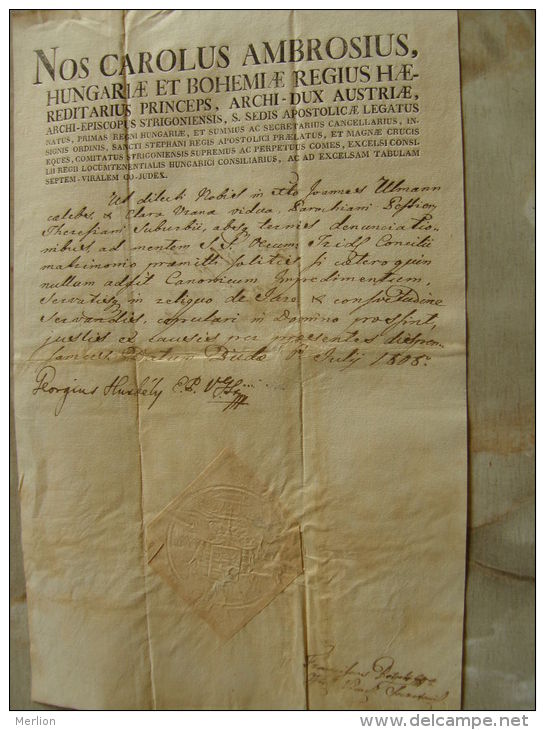 NOS CAROLUS AMBROSIUS,
HUNGARIÆ ET BOHEMIÆ REGIUS HÆ-
REDITARIUS PRINCEPS, ARCHI-DUX AUSTRIÆ,
ARCHI-EPISCOPUS STRIGONIENSIS, S. SEDIS APOSTOLICÆ LEGATUS
NATUS, PRIMAS REGNI HUNGARIÆ, ET SUMMUS AC SECRETARIUS CANCELLARIUS, IN-
SIGNIS ORDINIS, SANCTI STEPHANI REGIS APOSTOLICI PRÆLATUS, ET MAGNÆ CRUCIS
EQUES, COMITATUS STRIGONIENSIS SUPREMUS AC PERPETUUS COMES, EXCELSI CONSI-
LII REGII LOCUMTENENTIALIS HUNGARICI CONSILIARIUS, AC AD EXCELSAM TABULAM
SEPTEM-VIRALEM CO-JUDEX.
Ut dilecti Nobis in Joannes Ullmann
caelebs, & Clara Vrana vidua, Parochiani
Theresiani Suburbii, absq ternis denunciatio-
nibus ad mentem S. Trid. Concilii
matrimonio praemitti solitis si ceteroquin
nullum adsit Canonicum Impedimentum,
servatisq in reliquo de Jure & consvetudine
servandis, copulari in Domino possint,
justis ex causis per praesentes dispen-
samus. Datum Budae July 1808.
Georgius
Franciscus
Merlion
www.delcampe.net